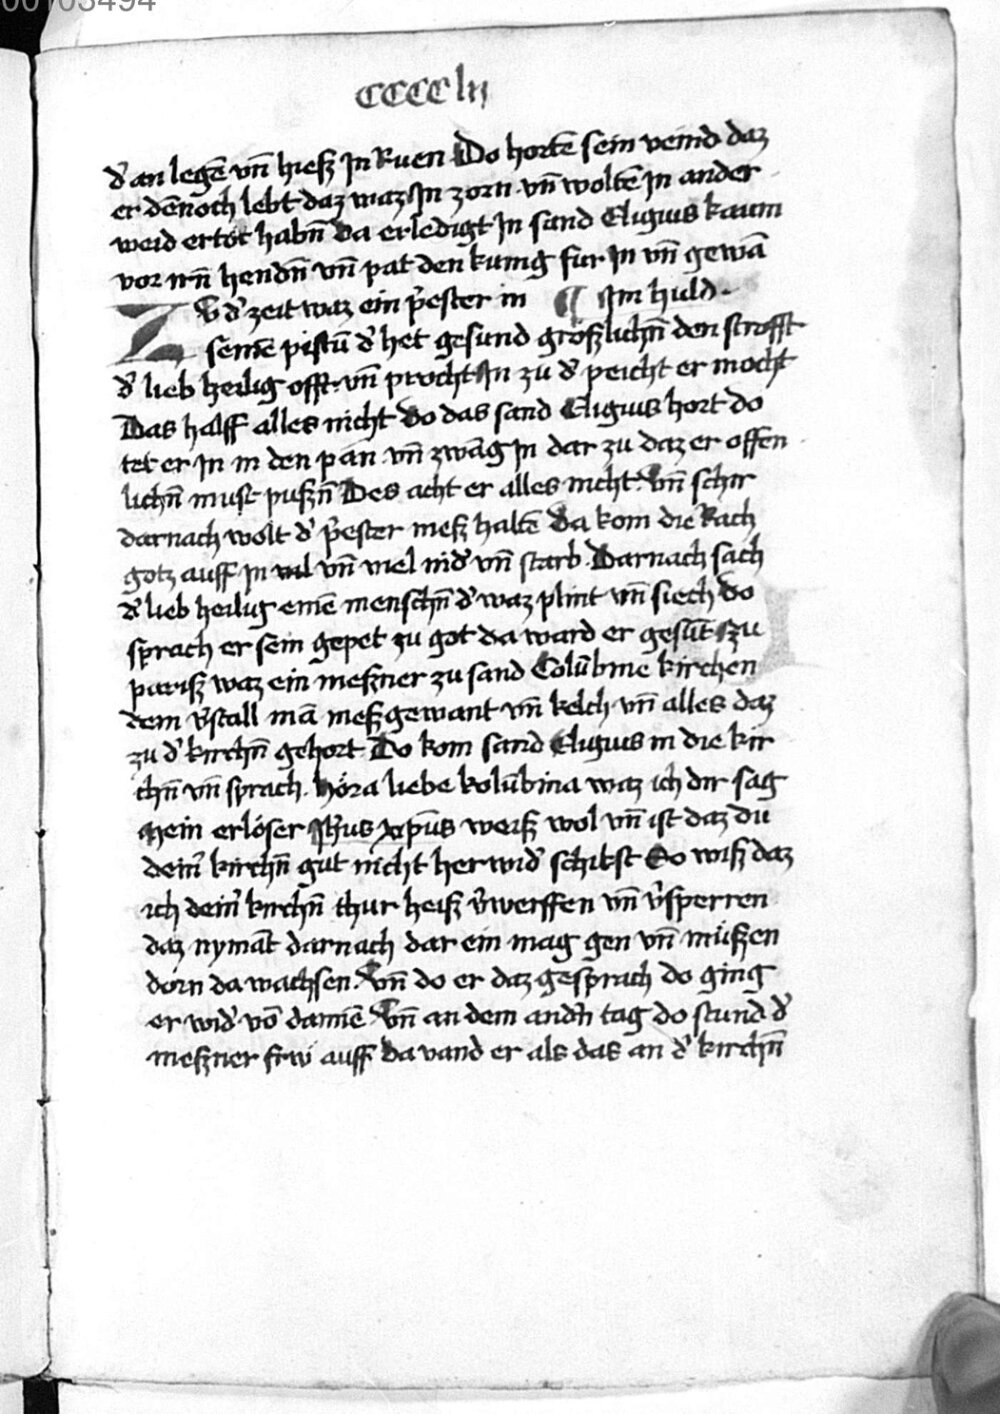 00103494
CCCC lij
d' an legē vn̄ hiesz jn Ruen Do hortē sein veind daz
er dēnoch lebt daz waz jn zorn vn̄ woltē jn ander
weid ertöt habn̄ da erledigt jn sand Eligius kaum
vor irn̄ hendn̄ vn̄ pat den kunig fur jn vn̄ gewā
¶ jm huld
Zu d' zeit waz ein p'ester in
seinē pistū d' het gesund gröszlichn̄ den strofft
d' lieb heilig offt vn̄ procht jn zu d' peicht er mocht
Das halff alles nicht do das sand Eligius hort do
tet er jn in den pan vn̄ zwāg jn dar zu daz er offen
lichn̄ must puszn̄ Des acht er alles nicht Vn̄ schir
darnach wolt d' p'ester mesz haltē Da kom die Rach
gotz auff jn vn̄ viel nid' vn̄ starb Darnach sach
d' lieb heilig einē menschn̄ d' waz plint vn̄ siech do
sprach er sein gepet zu got da ward er gesūt Zu
parisz waz ein meszner zu sand Colūbine kirchen
dem v'stall mā meszgewant vn̄ kelch vn̄ alles daz
zu d' kirchn̄ gehort Do kom sand Eligius in die kir
chn̄ vn̄ sprach höra liebe kolūbina waz ich dir sag
Mein erlöser Jh'us xp̄us weisz wol vn̄ ist daz du
dein' kirchn̄ gut nicht herwid' schikst So wisz daz
ich dein' kirchn̄ thur heisz v'werffen vn̄ v'sperren
daz nymāt darnach dar ein mag gen vn̄ müszen
dorn da wachsen Vn̄ do er daz gesprach do ging
er wid' vō dannē Vn̄ an dem and'n tag do stund d'
meszner frw auff da vand er als das an d' kirchn̄